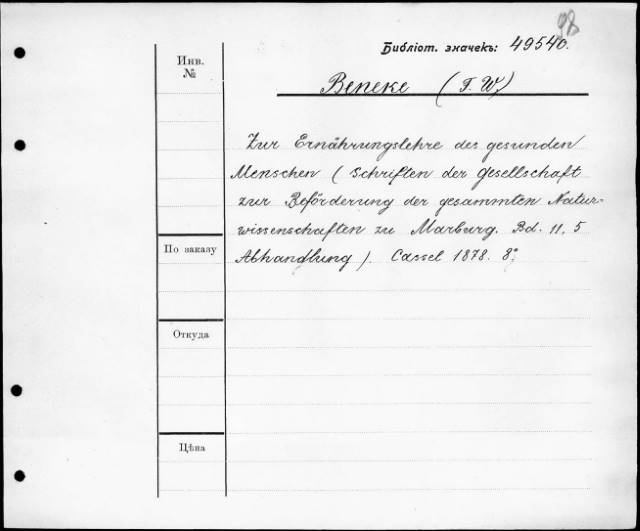 98
Библіот. значекъ: 49540.
Инв.
№
Beneke (F. W.)
Zur Ernährungslehre des gesunden
Menschen (Schriften der Gesellschaft
zur Beförderung der gesammten Natur-
wissenschaften zu Marburg. Bd. 11, 5
Abhandlung). Cassel 1878. 8°.
По заказу
Откуда
Цѣна